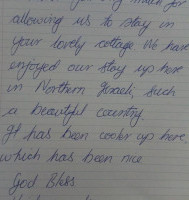 much for
allowing us to stay in
your lovely cottage We have
enjoyed our stay up here
in Northern Israeli, such
a beautiful country.
It has been cooler up here
which has been nice
God Bless